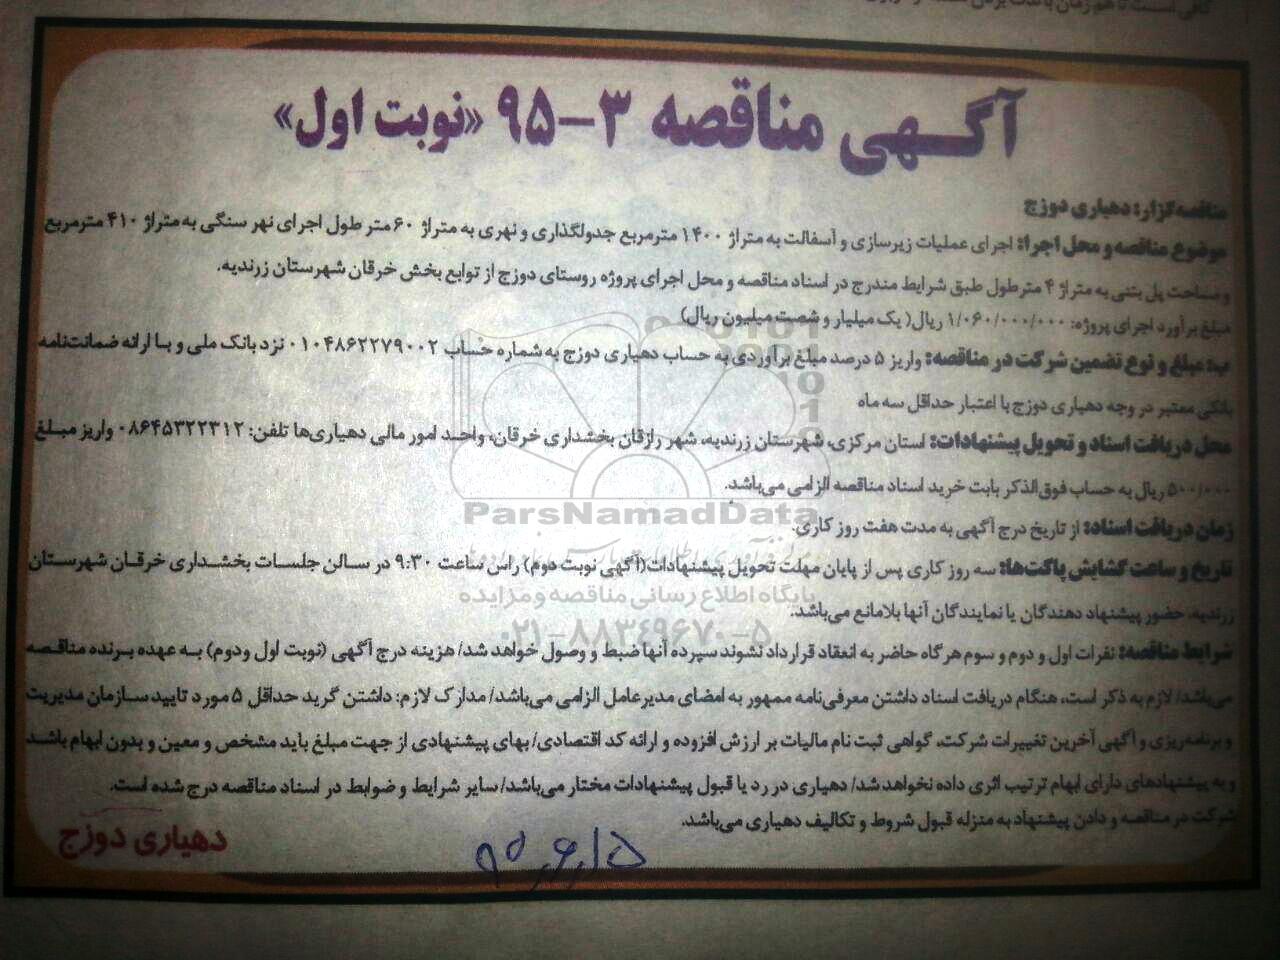 آگهی مناقصه ۳-۹۵ «نوبت اول»
مناقصه‌گزار: دهیاری دوزج
موضوع مناقصه و محل اجرا: اجرای عملیات زیرسازی و آسفالت به متراژ ۱۴۰۰ مترمربع جدولگذاری و نهری به متراژ ۶۰ متر طول اجرای نهر سنگی به متراژ ۴۱۰ مترمربع
و مساحت پل بتنی به متراژ ۴ مترطول طبق شرایط مندرج در اسناد مناقصه و محل اجرای پروژه روستای دوزج از توابع بخش خرقان شهرستان زرندیه.
مبلغ برآورد اجرای پروژه: ۱/۰۶۰/۰۰۰/۰۰۰ ریال( یک میلیار و شصت میلیون ریال)
ب: مبلغ و نوع تضمین شرکت در مناقصه: واریز ۵ درصد مبلغ برآوردی به حساب دهیاری دوزج به شماره حساب ۰۱۰۴۸۶۲۲۷۹۰۰۲ نزد بانک ملی و با ارائه ضمانت‌نامه
بانکی معتبر در وجه دهیاری دوزج با اعتبار حداقل سه ماه
محل دریافت اسناد و تحویل پیشنهادات: استان مرکزی، شهرستان زرندیه، شهر رازقان بخشداری خرقان، واحد امور مالی دهیاری‌ها تلفن: ۰۸۶۴۵۳۲۲۳۱۲ واریز مبلغ
۵۰۰/۰۰۰ ریال به حساب فوق‌الذکر بابت خرید اسناد مناقصه الزامی می‌باشد.
ParsNamadData
زمان دریافت اسناد: از تاریخ درج آگهی به مدت هفت روز کاری.
تاریخ و ساعت گشایش پاکت‌ها: سه روز کاری پس از پایان مهلت تحویل پیشنهادات(آگهی نوبت دوم) راس ساعت ۹:۳۰ در سالن جلسات بخشداری خرقان شهرستان
پایگاه اطلاع رسانی مناقصه و مزایده
زرندیه، حضور پیشنهاد دهندگان یا نمایندگان آنها بلامانع می‌باشد.
۰۲۱-۸۸۳۴۹۶۷۰-۵
شرایط مناقصه: نفرات اول و دوم و سوم هرگاه حاضر به انعقاد قرارداد نشوند سپرده آنها ضبط و وصول خواهد شد/ هزینه درج آگهی (نوبت اول ودوم) به عهده برنده مناقصه
می‌باشد/ لازم به ذکر است، هنگام دریافت اسناد داشتن معرفی‌نامه ممهور به امضای مدیرعامل الزامی می‌باشد/ مدارک لازم: داشتن گرید حداقل ۵ مورد تایید سازمان مدیریت
و برنامه‌ریزی و آگهی آخرین تغییرات شرکت، گواهی ثبت نام مالیات بر ارزش افزوده و ارائه کد اقتصادی/ بهای پیشنهادی از جهت مبلغ باید مشخص و معین و بدون ابهام باشد
و به پیشنهادهای دارای ابهام ترتیب اثری داده نخواهد شد/ دهیاری در رد یا قبول پیشنهادات مختار می‌باشد/ سایر شرایط و ضوابط در اسناد مناقصه درج شده است.
شرکت در مناقصه و دادن پیشنهاد به منزله قبول شروط و تکالیف دهیاری می‌باشد.
دهیاری دوزج